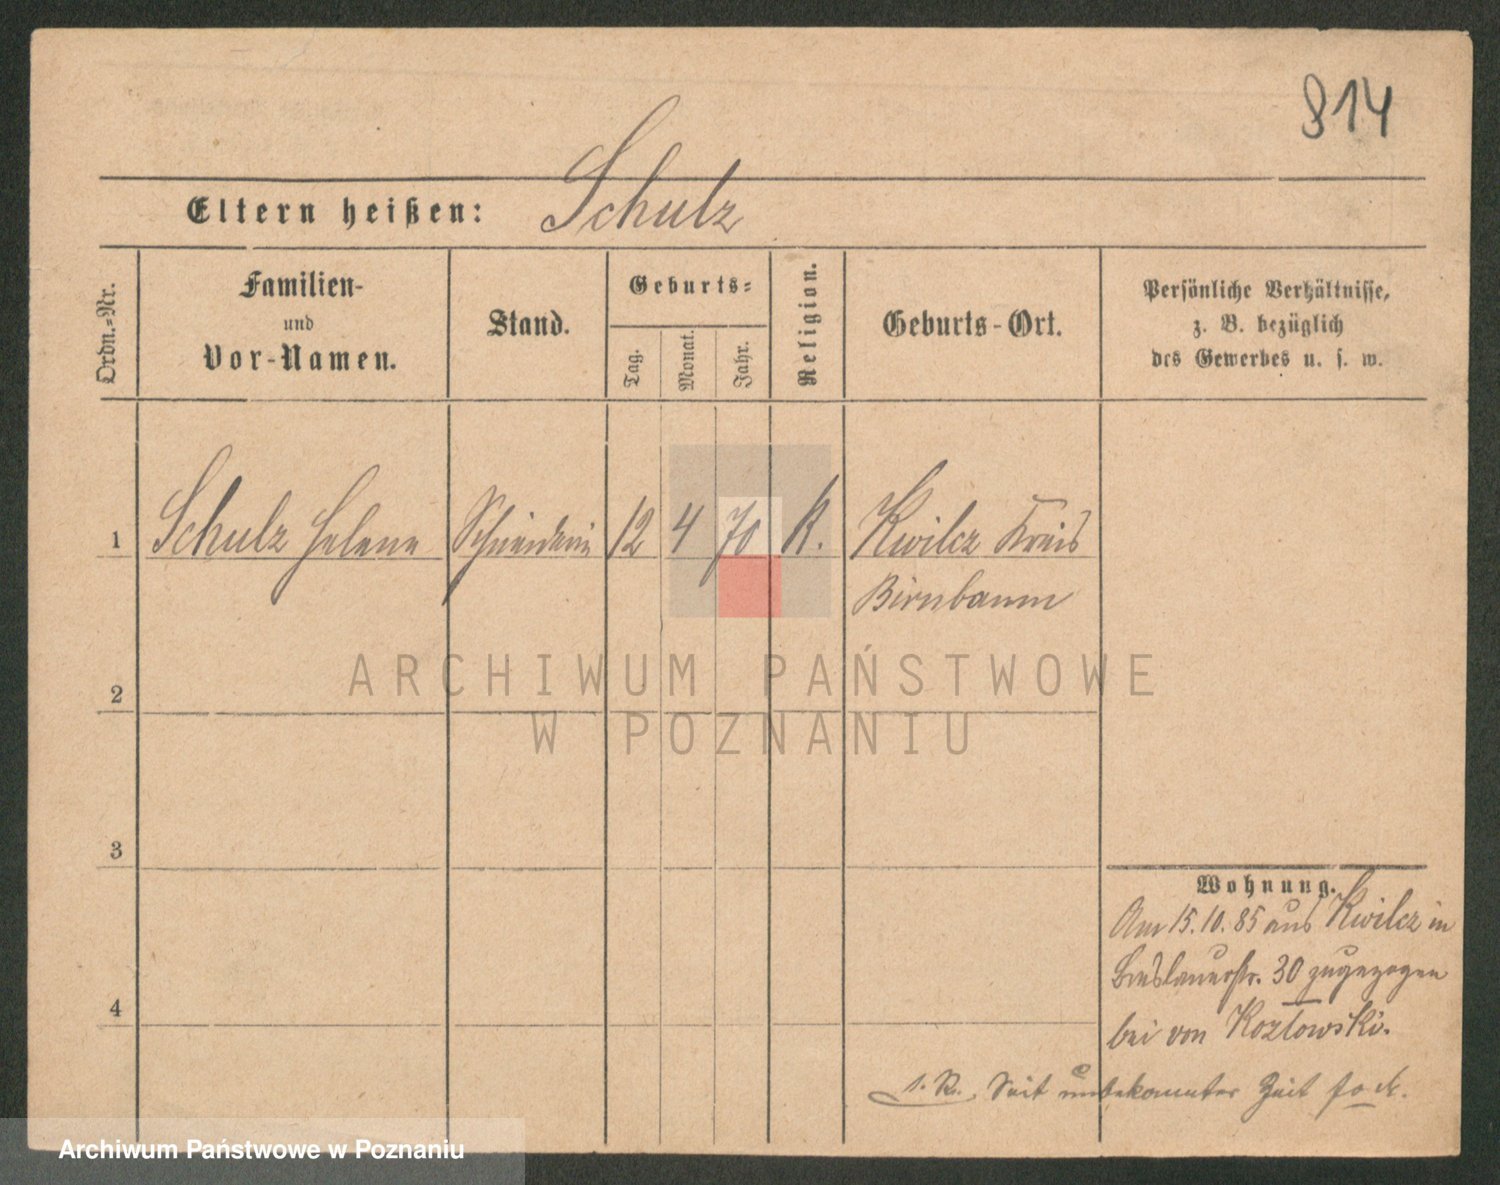 814
Eltern heißen: Schulz
Ordn.=Nr.
Familien-
und
Vor-Namen.
Stand.
Geburts=
Tag.
Monat.
Jahr.
Religion.
Geburts-Ort.
Persönliche Verhältnisse,
z. B. bezüglich
des Gewerbes u. s. w.
1 Schulz Helene Schneiderin 12 4 70 K. Kwilcz Kreis
Birnbaum
ARCHIWUM PAŃSTWOWE
W POZNANIU
2
3
4
Wohnung.
Am 15.10.85 aus Kwilcz in
Breslauerstr. 30 zugezogen
bei von Kozlowski.
Seit unbekannter Zeit
Archiwum Państwowe w Poznaniu